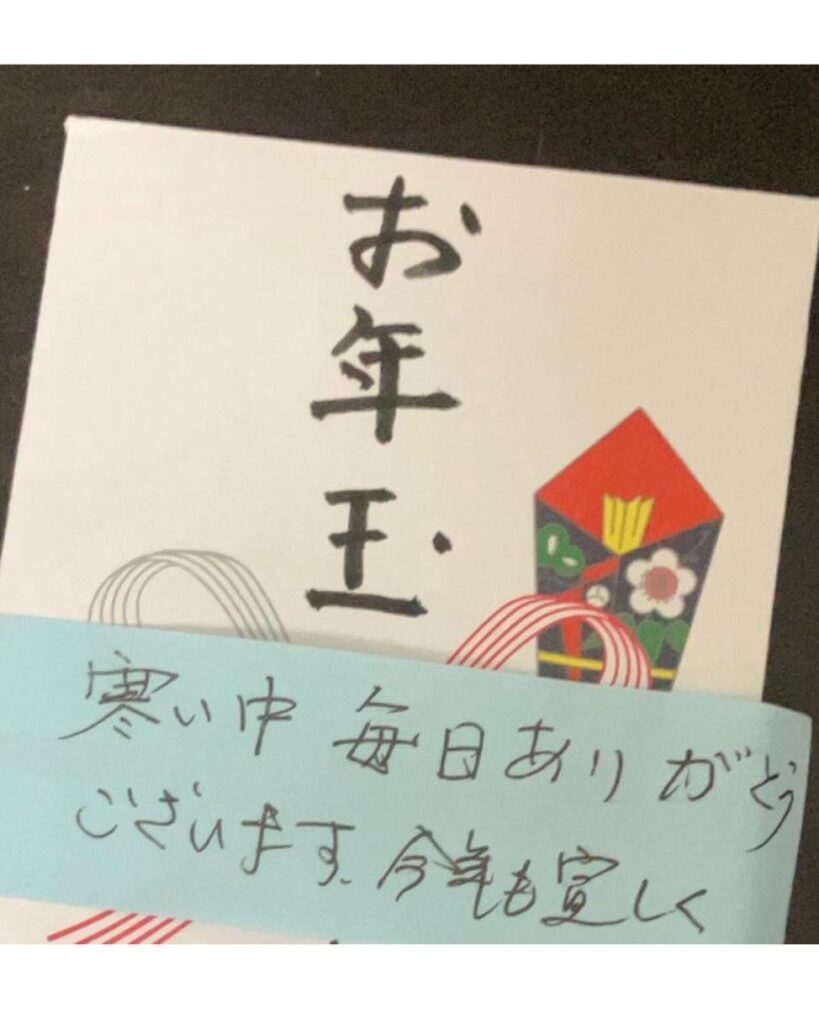 お年玉
寒い中 毎日ありがとう
ございます、今年も宜しく